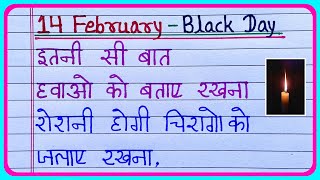 14 February - Black Day
इतनी सी बात
हवाओ को बताए रखना
रोशनी होगी चिरागो को
जलाए रखना,